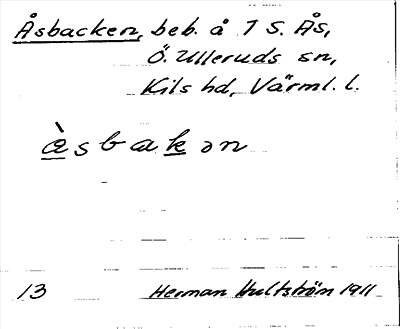 Åsbacken, beb. å 1 S. Ås,
Ö. Ulleruds sn,
Kils hd, Värml. l.
å̀sbakən
13 Herman Hultström 1911